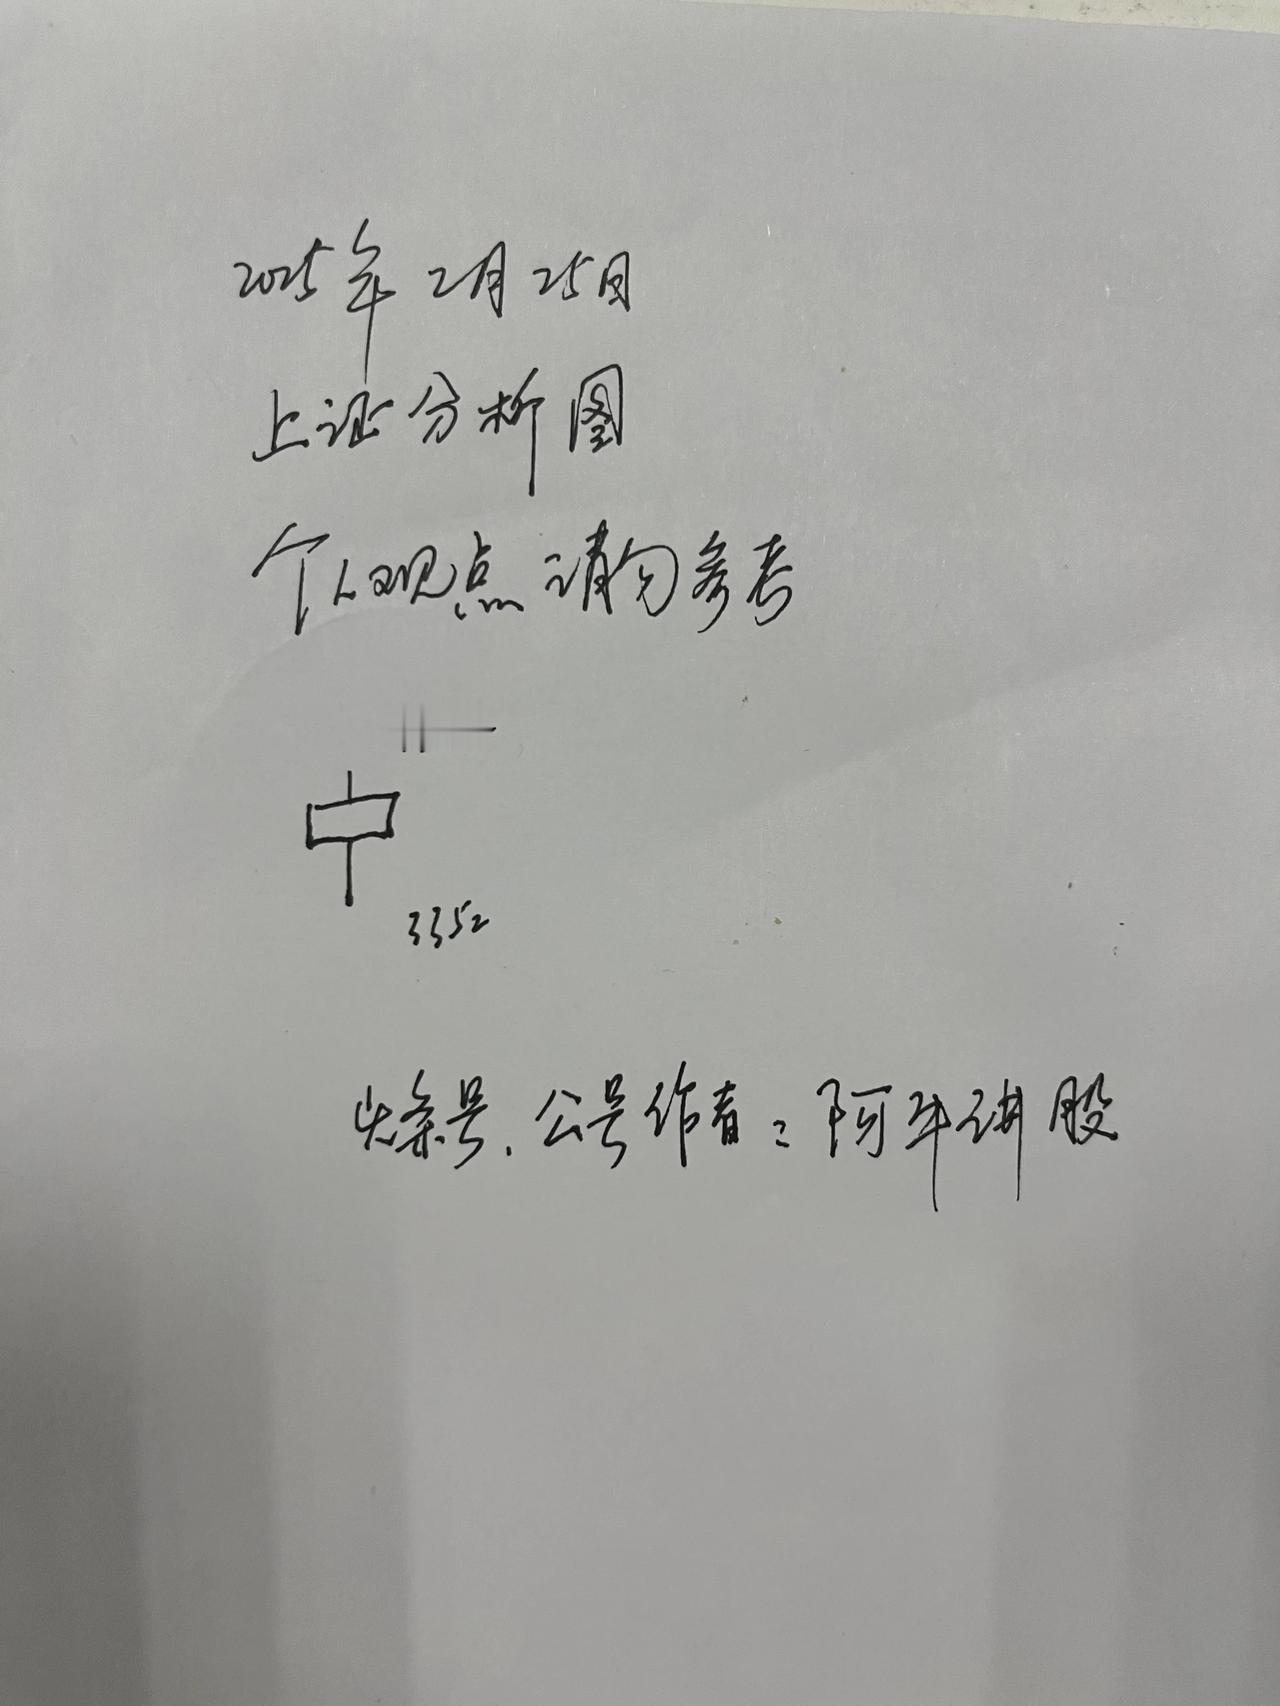 2025年2月25日
上证分析图
个人观点请勿参考
3352
头条号、公号作者：阿牛讲股